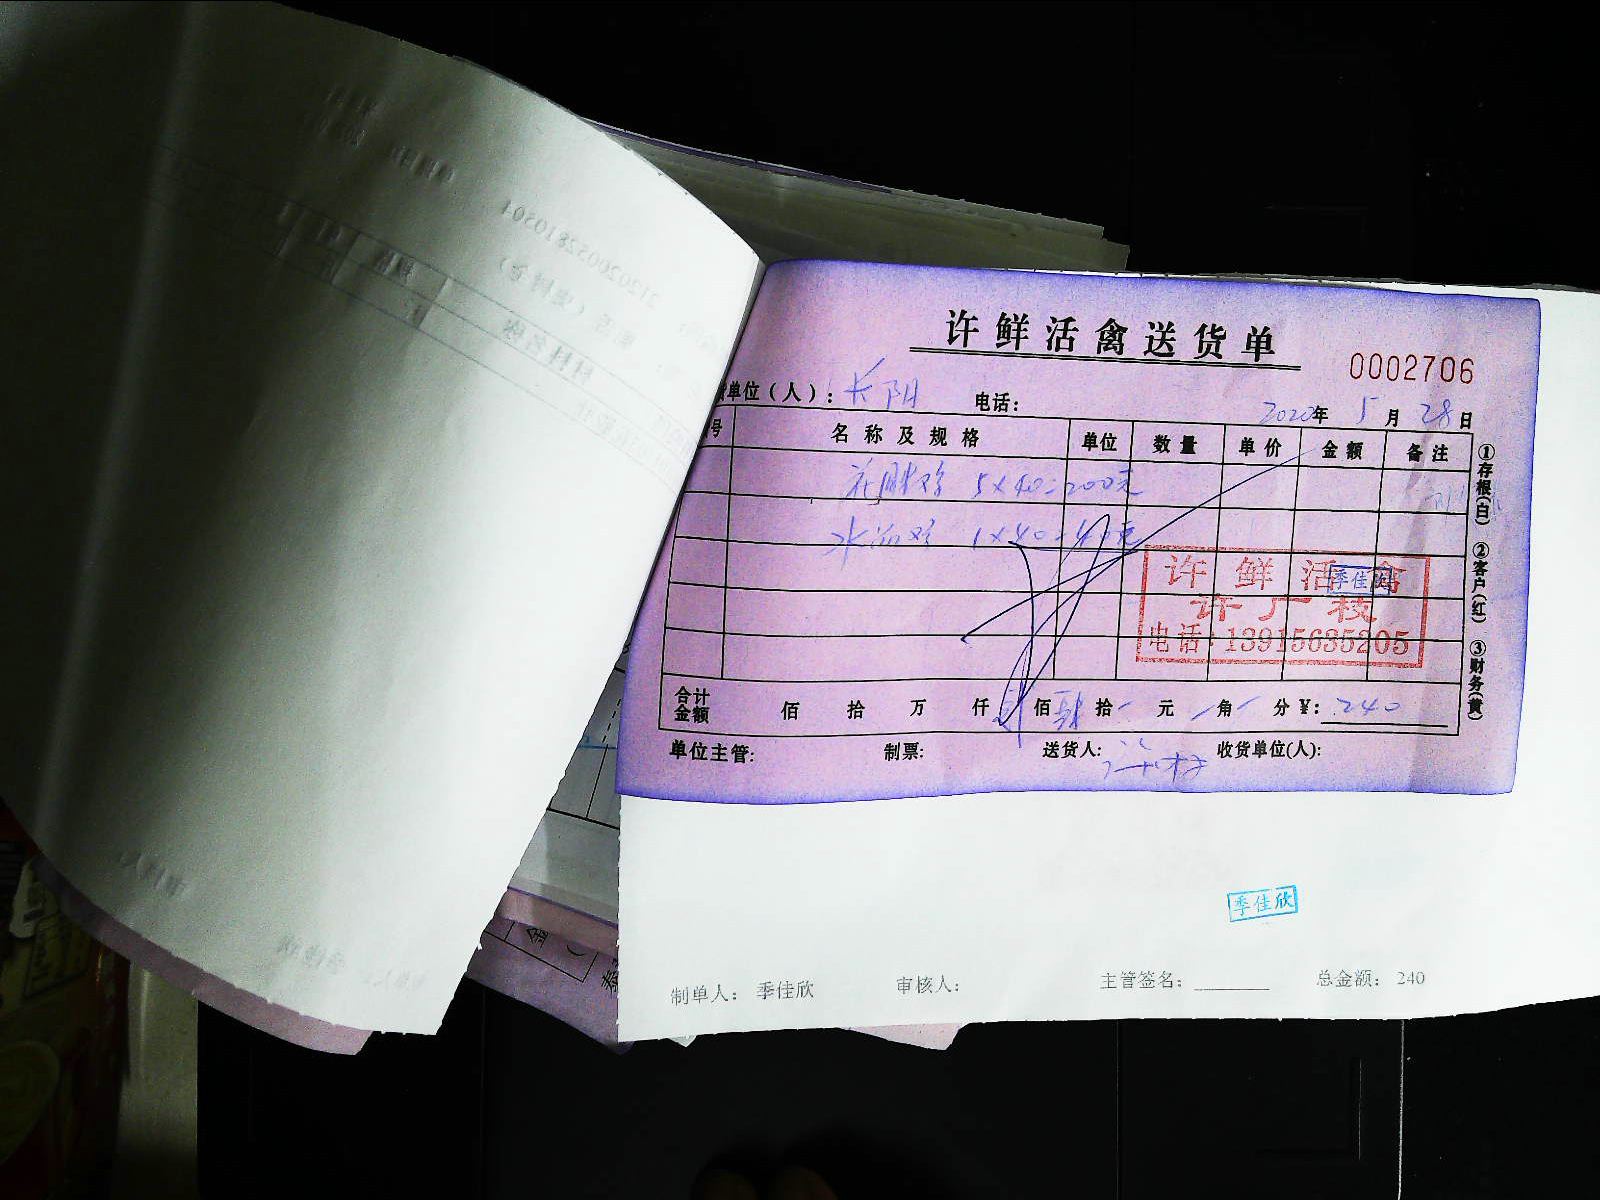 许鲜活禽送货单
0002706
单位（人）：长阴 电话：
2020年 5月 28日
号 名称及规格 单位 数量 单价 金额 备注
5×40=200元
1×40=40元
①存根(白) ②客户(红) ③财务(黄)
许鲜活禽
季佳欣
许广枝
电话：13915635205
合计金额 佰 拾 万 仟 贰佰 肆拾 元 角 分 ¥：240
单位主管： 制票： 送货人： 收货单位(人)：
季佳欣
制单人： 季佳欣 审核人： 主管签名：________ 总金额： 240